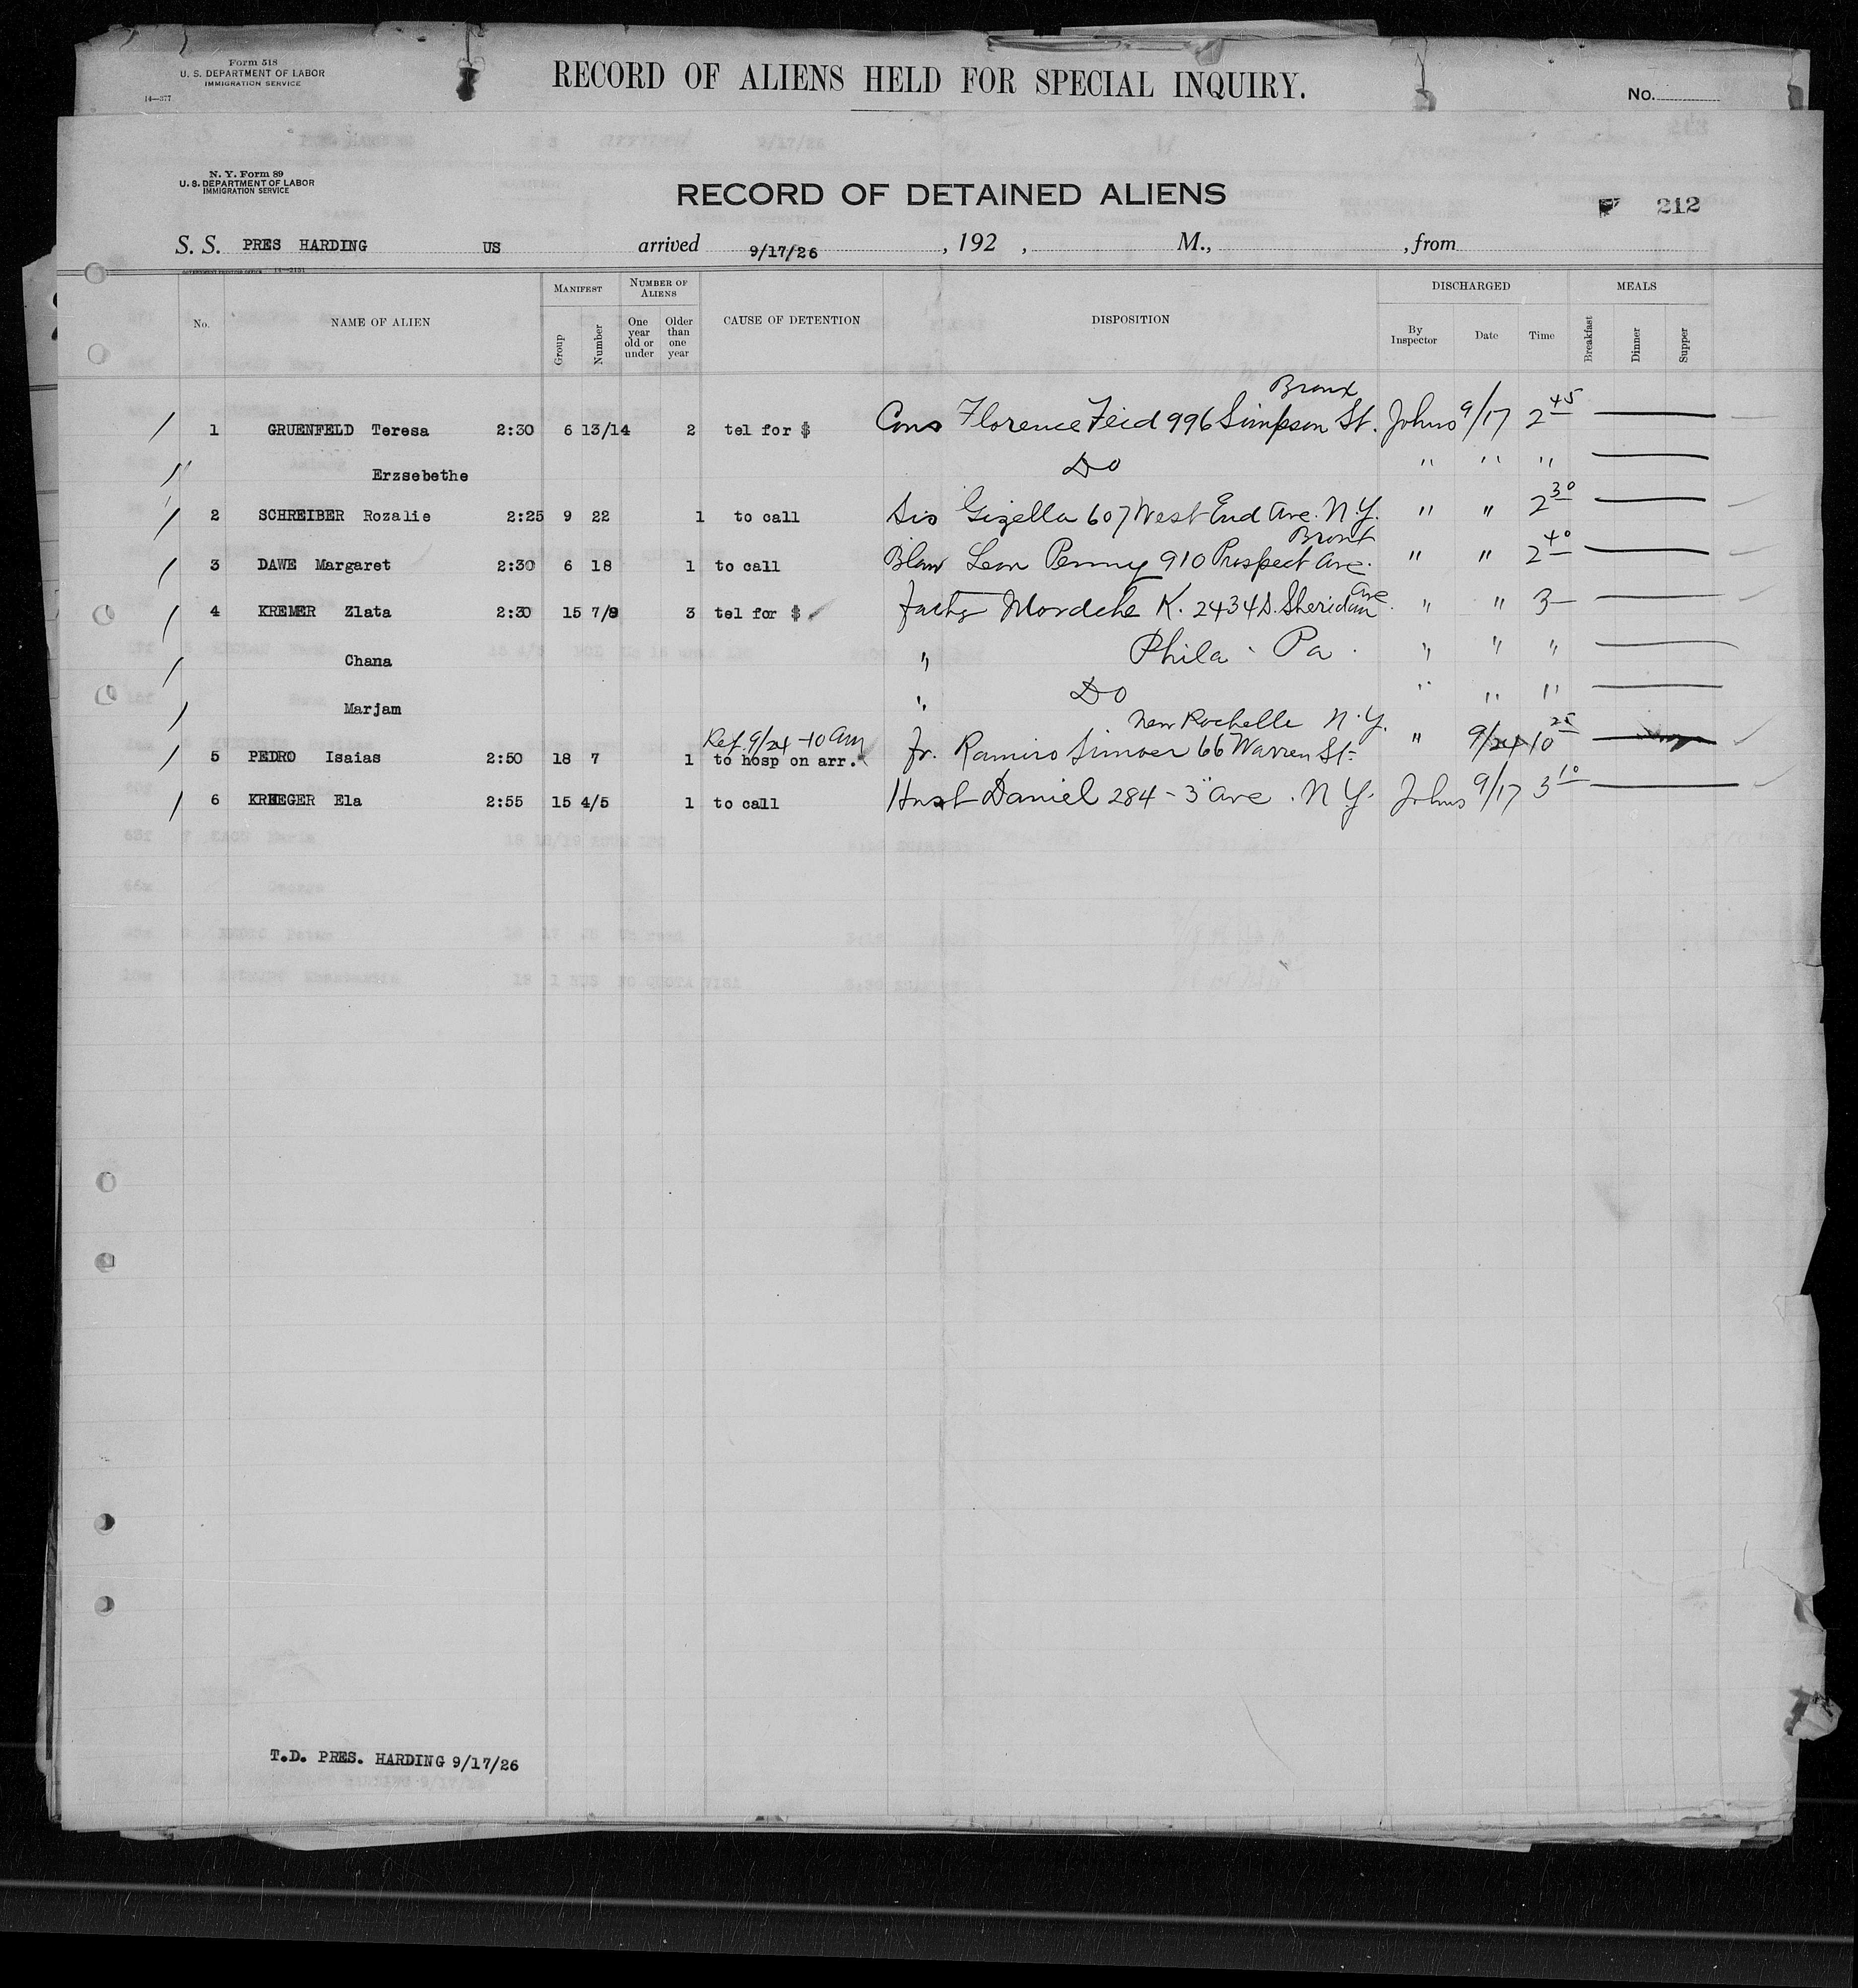 Form 518
U. S. DEPARTMENT OF LABOR
IMMIGRATION SERVICE
14—377
RECORD OF ALIENS HELD FOR SPECIAL INQUIRY.
No.
N. Y. Form 89
U. S. DEPARTMENT OF LABOR
IMMIGRATION SERVICE
RECORD OF DETAINED ALIENS
212
S. S. PRES HARDING US arrived 9/17/26 , 192 , M., , from
GOVERNMENT PRINTING OFFICE 14—3151
No. NAME OF ALIEN MANIFEST Group Number NUMBER OF ALIENS One year old or under Older than one year CAUSE OF DETENTION DISPOSITION DISCHARGED By Inspector Date Time MEALS Breakfast Dinner Supper
Bronx
1 GRUENFELD Teresa 2:30 6 13/14 2 tel for $ Cous Florence Feid 996 Simpson St. Johns 9/17 2 45
Erzsebethe Do " " "
2 SCHREIBER Rozalie 2:25 9 22 1 to call Sis Gizella 607 West End Ave. N.Y. " " 2 30
Bronx
3 DAWE Margaret 2:30 6 18 1 to call Leon Penny 910 Prospect Ave. " " 2 40
4 KREMER Zlata 2:30 15 7/9 3 tel for $ Mordche K. 2434 S. Sheridan Ave. " " 3
Chana " Phila. Pa. " " "
Marjam " Do " " "
Ref. 9/24 - 10 am New Rochelle N.Y.
5 PEDRO Isaias 2:50 18 7 1 to hosp on arr. Fr. Ramiro 66 Warren St. " 9/24 10 25
6 KRUEGER Ela 2:55 15 4/5 1 to call Husb Daniel 284 - 3" Ave. N.Y. Johns 9/17 3 10
T.D. PRES. HARDING 9/17/26